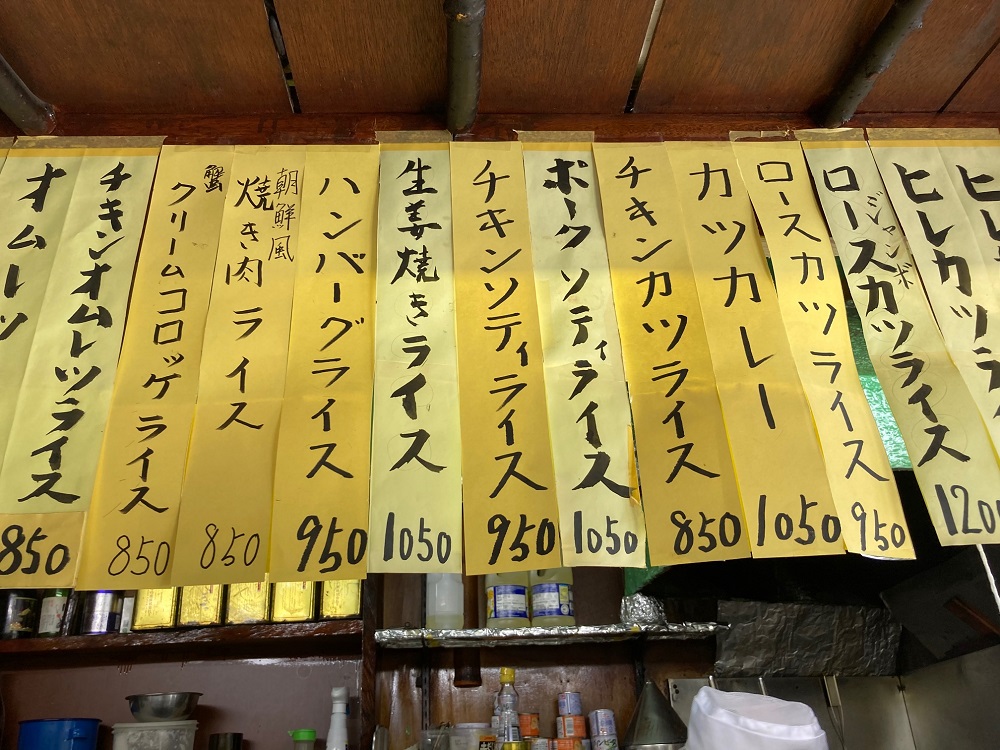 ヒレ
ヒレカツラ
ジャンボ
ロースカツライス
1200
ロースカツライス
950
カツカレー
1050
チキンカツライス
850
ポークソティライス
1050
チキンソティライス
950
生姜焼きライス
1050
ハンバーグライス
950
朝鮮風
焼き肉ライス
850
蟹
クリームコロッケライス
850
チキンオムレツライス
850
オムレツ